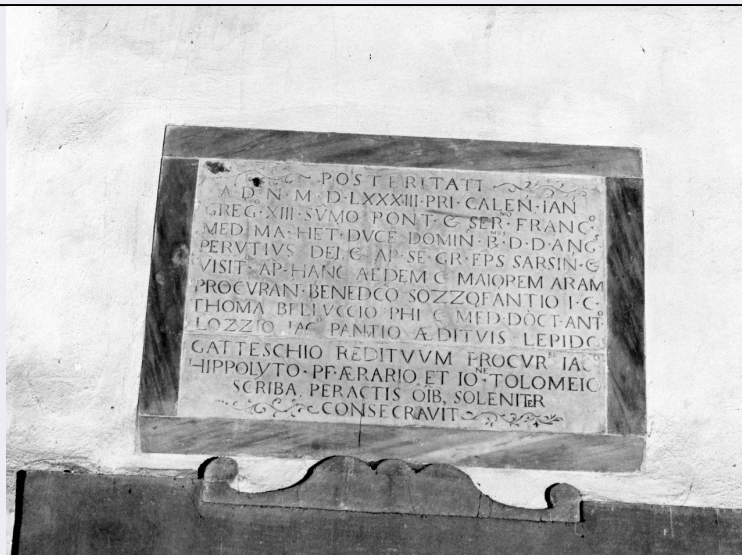 POSTERITATI
A·D·N·M·D·LXXXIIII·PRI·CALEN·IAN
GREG·XIII·SVMO PONT·& SER·MO FRANC·O
MED·MA·HET·DVCE DOMIN·B·MVS D·D·ANG·
PERVTIVS DEI·& AP·SE·GR·EPS SARSIN·&
VISIT·AP·HANC AEDEM & MAIOREM ARAM
PROCVRAN·BENEDCO SOZZOFANTIO I·C·
THOMA BELLVCCIO PHI & MED·DOCT·ANT·
LOZZIO IACO PANTIO ÆDITVIS LEPIDO
GATTESCHIO REDITVVM PROCVR·RE IACO
HIPPOLYTO·PF·ÆRARIO·ET IO·NE TOLOMEIO
SCRIBA·PERACTIS OIB·SOLENITER
CONSECRAVIT